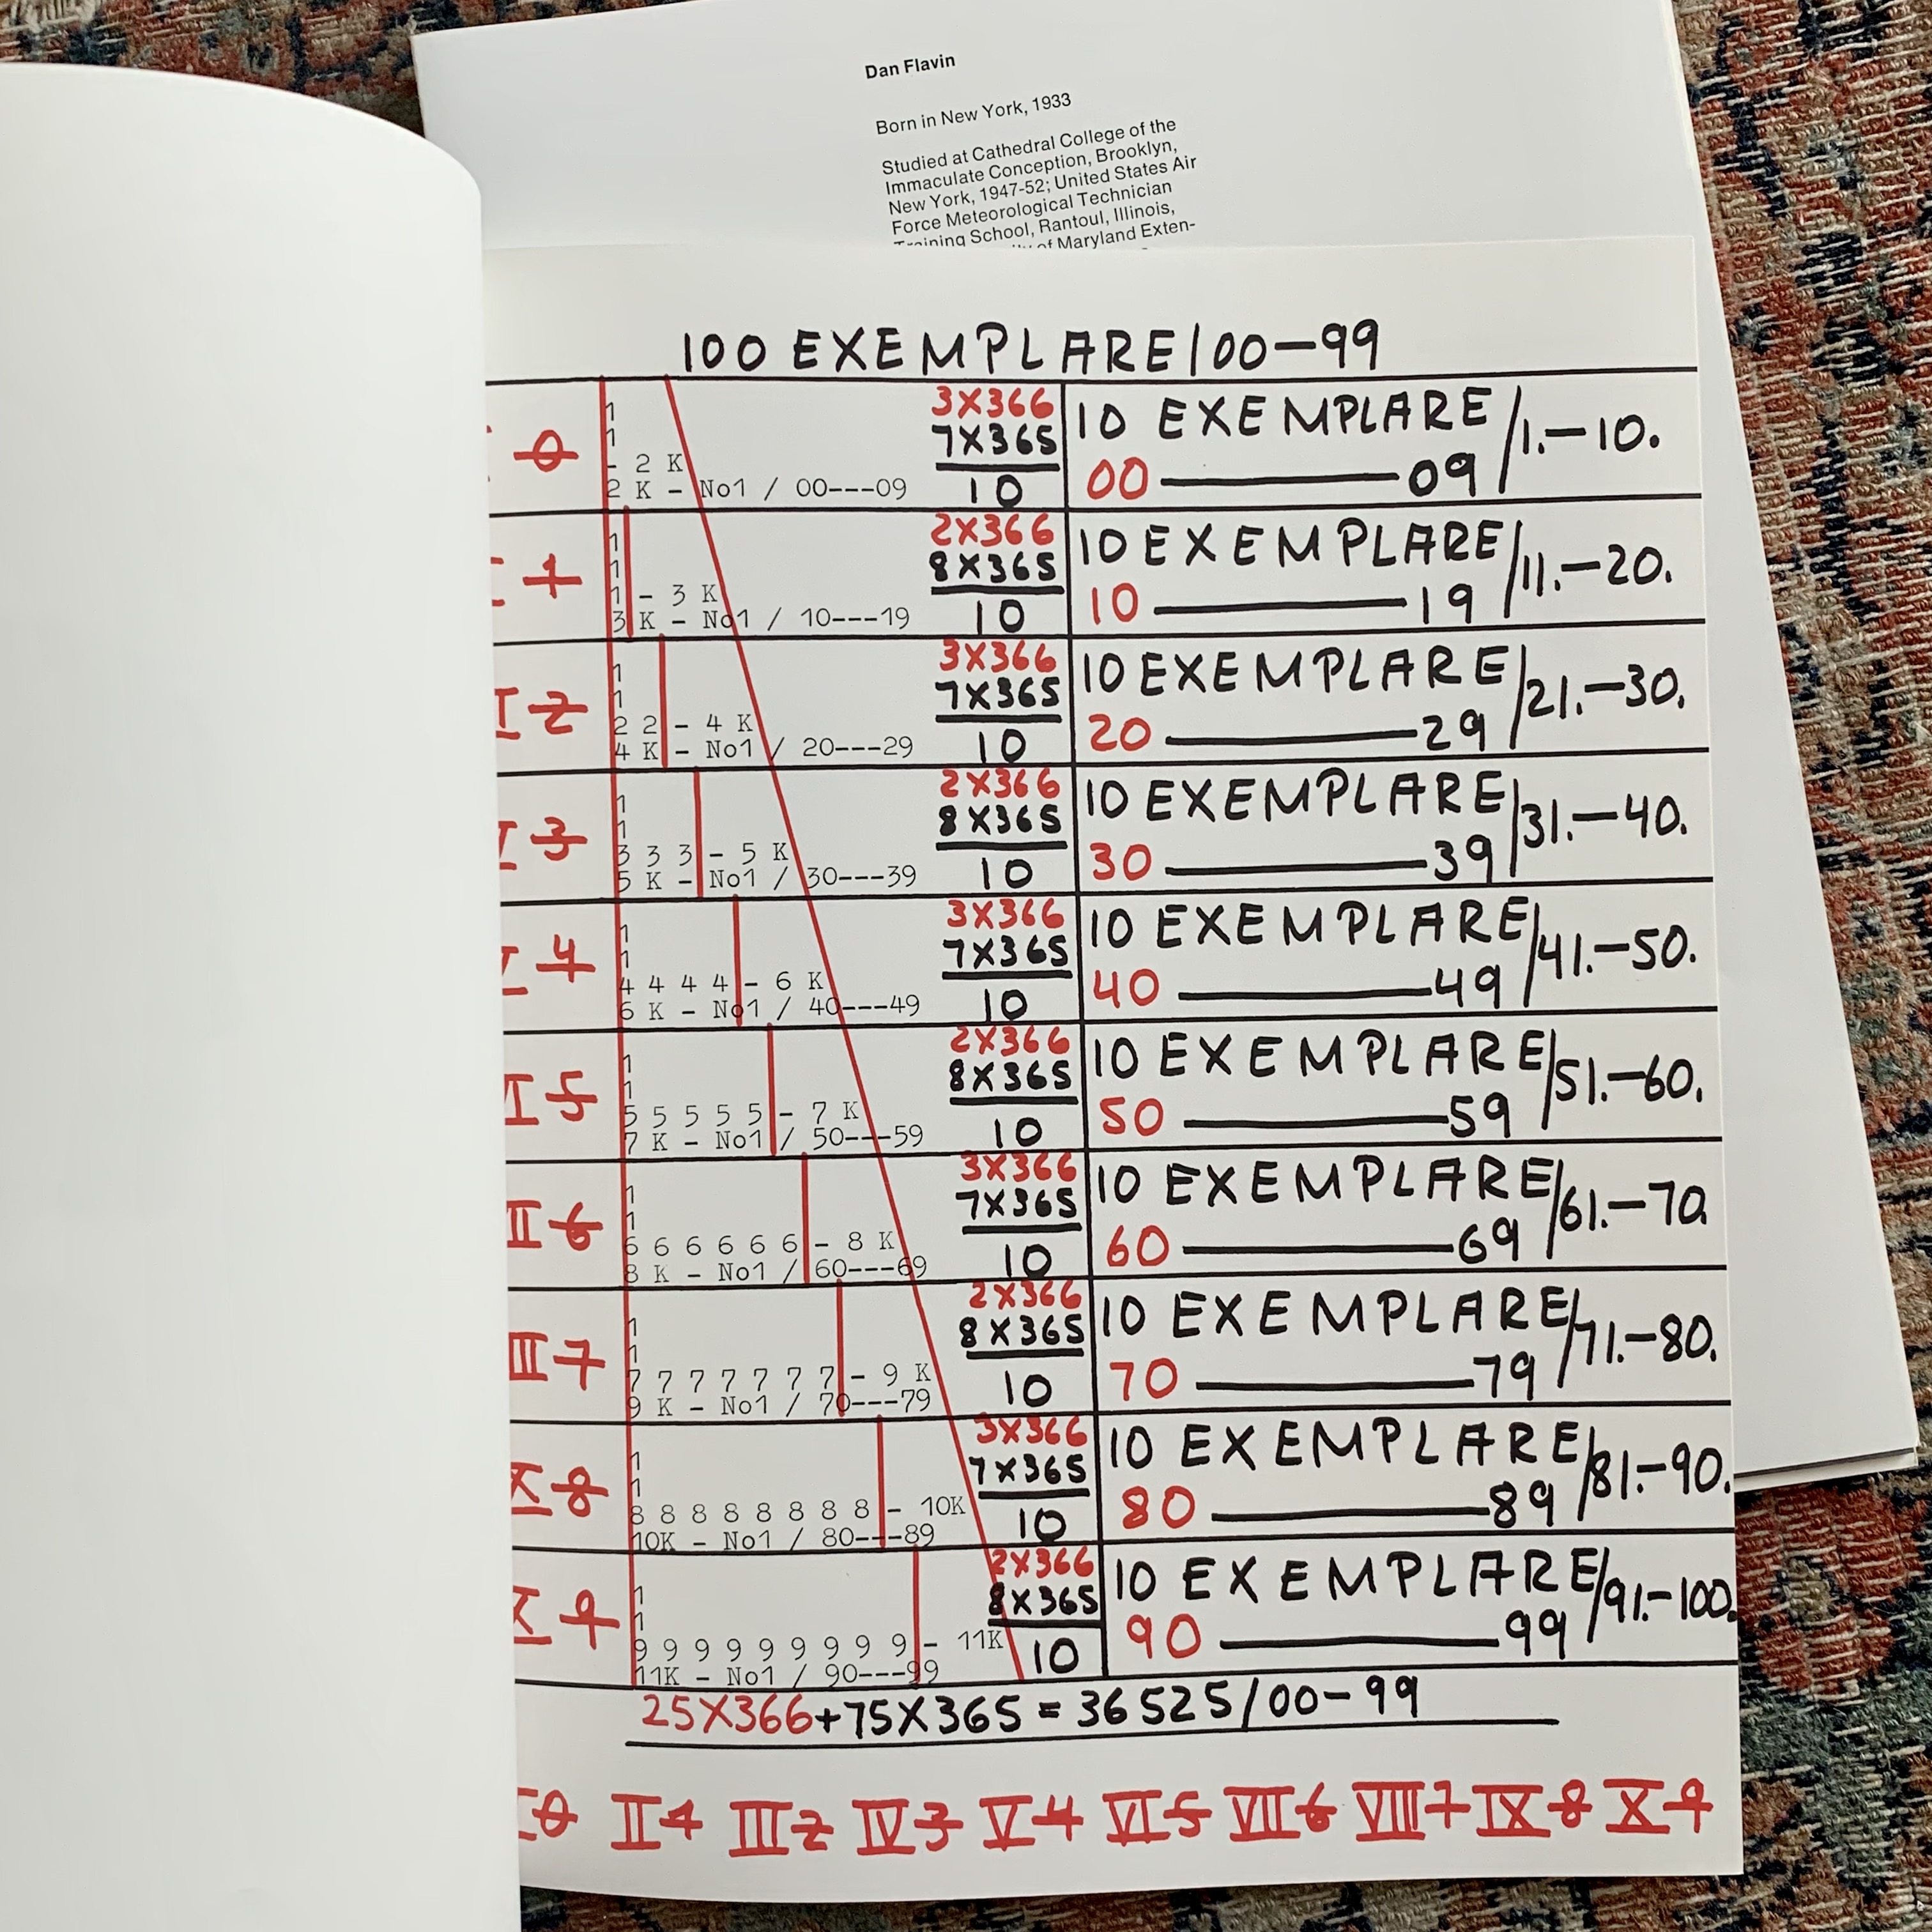 Dan Flavin
Born in New York, 1933
Studied at Cathedral College of the
Immaculate Conception, Brooklyn,
New York, 1947-52; United States Air
Force Meteorological Technician
Training School, Rantoul, Illinois,
of Maryland Exten-
100 EXEMPLARE/00—99
0
1
1
- 2 K
2 K - No1 / 00---09
3X366
7X365
10
10 EXEMPLARE
00 — 09
/1.—10.
1
1
1
1 - 3 K
3 K - No1 / 10---19
2X366
8X365
10
10 EXEMPLARE
10 — 19
/11.—20.
2
1
1
2 2 - 4 K
4 K - No1 / 20---29
3X366
7X365
10
10 EXEMPLARE
20 — 29
/21.—30.
3
1
1
3 3 3 - 5 K
5 K - No1 / 30---39
2X366
8X365
10
10 EXEMPLARE
30 — 39
/31.—40.
4
1
1
4 4 4 4 - 6 K
6 K - No1 / 40---49
3X366
7X365
10
10 EXEMPLARE
40 — 49
/41.—50.
5
1
1
5 5 5 5 5 - 7 K
7 K - No1 / 50---59
2X366
8X365
10
10 EXEMPLARE
50 — 59
/51.—60.
II 6
1
1
6 6 6 6 6 6 - 8 K
8 K - No1 / 60---69
3X366
7X365
10
10 EXEMPLARE
60 — 69
/61.—70.
III 7
1
1
7 7 7 7 7 7 7 - 9 K
9 K - No1 / 70---79
2X366
8X365
10
10 EXEMPLARE
70 — 79
/71.—80.
X 8
1
1
8 8 8 8 8 8 8 8 - 10K
10K - No1 / 80---89
3X366
7X365
10
10 EXEMPLARE
80 — 89
/81.—90.
X 9
1
1
9 9 9 9 9 9 9 9 9 - 11K
11K - No1 / 90---99
2X366
8X365
10
10 EXEMPLARE
90 — 99
/91.—100.
25X366+75X365=36525/00-99
I 0 II 1 III 2 IV 3 V 4 VI 5 VII 6 VIII 7 IX 8 X 9